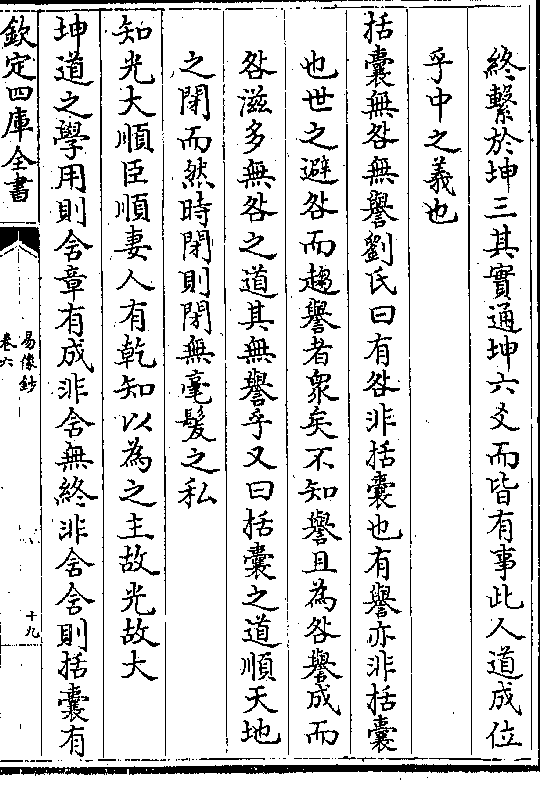 終繫於坤三其實通坤六爻而皆有事此人道成位
乎中之義也
括囊無咎無譽劉氏曰有咎非括囊也有譽亦非括囊
也世之避咎而趨譽者衆矣不知譽且為咎譽成而
咎滋多無咎之道其無譽乎又曰括囊之道順天地
之閉而然時閉則閉無毫髮之私
知光大順臣順妻人有乾知以為之主故光故大
坤道之學用則含章有成非含無終非含含則括囊有
欽定四庫全書
易像鈔
卷六
十九